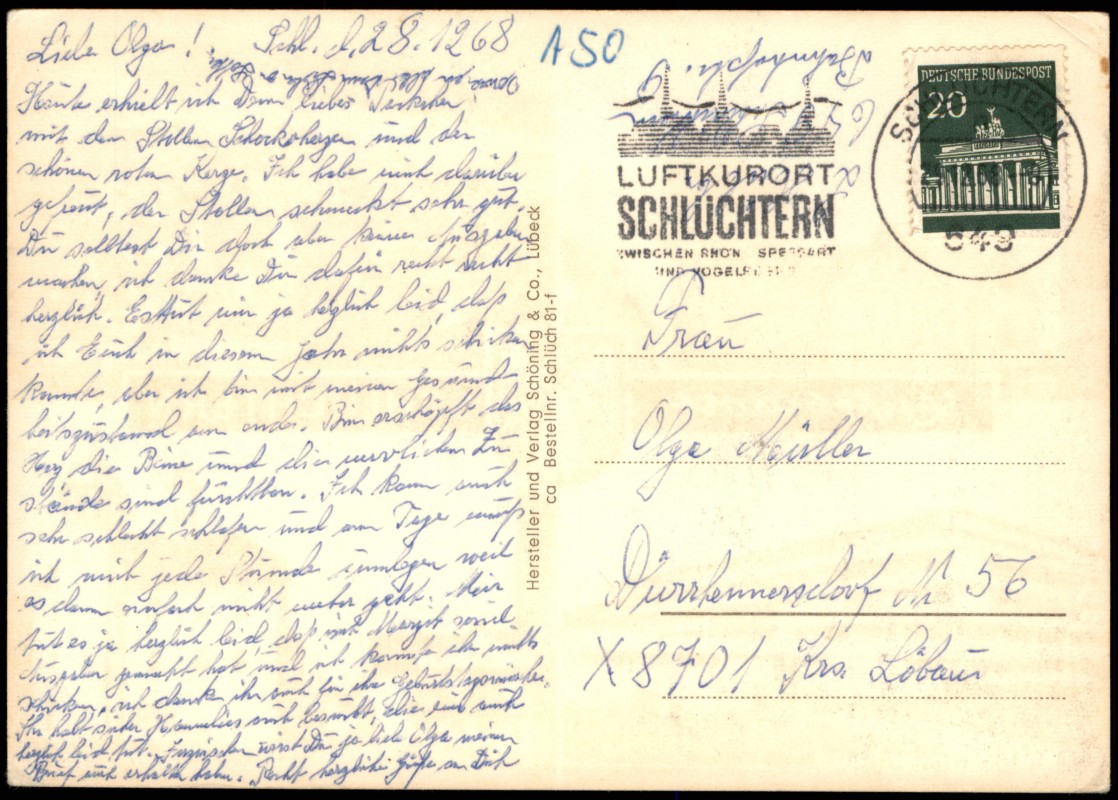 Liebe Olga! Schl. d. 28.1268
Heute erhielt ich Dein liebes Päckchen
mit dem Stollen Schokoherzen und der
schönen roten Kerze. Ich habe mich darüber
gefreut, der Stollen schmeckt sehr gut.
Du solltest Dir doch aber keine Ausgaben
machen, ich danke Dir dafür recht
herzlich. Es tut mir ja herzlich leid, dass
ich Euch in diesem Jahr nichts schicken
konnte, aber ich bin mit meinem Gesund-
heitszustand am ende. Bin erschöpft das
Herz die Beine und die nervlichen Zu
stände sind furchtbar. Ich kann auch
sehr schlecht schlafen und am Tage muss
ich mich jede Stunde hinlegen weil
es dann einfach nicht mehr geht. Mir
tut es ja herzlich leid, dass mit
gemacht hat und ich konnte ihr nichts
schicken, ich danke ihr auch für ihre Geburtstagswünsche.
Ihr habt sicher Hannelies auch besucht, die mir auch
herzlich leid tut. Inzwischen wirst Du ja liebe Olga meinen
Brief auch erhalten haben. Recht herzliche Grüße an Dich
A50
Bahnhofstr. 9
LUFTKURORT
SCHLÜCHTERN
ZWISCHEN RHÖN SPESSART
UND VOGELSBERG
DEUTSCHE BUNDESPOST
20
SCHLÜCHTERN
649
Hersteller und Verlag Schöning & Co., Lübeck
ca Bestellnr. Schlüch 81-f
Frau
Olga Müller
Dürrhennersdorf Nr 56
X 8701 Krs. Löbau